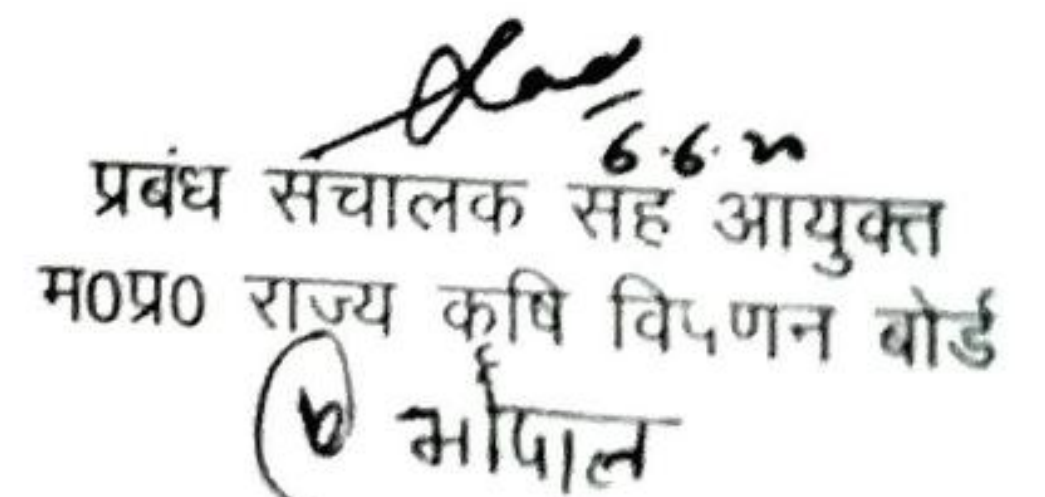 6.6.
प्रबंध संचालक सह आयुक्त
म0प्र0 राज्य कृषि विपणन बोर्ड
भोपाल